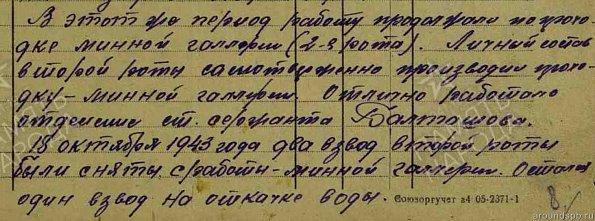 В этот же период работу продолжали по прохо-
дке минной галлереи (2-я рота). Личный состав
второй роты самоотверженно производил прохо-
дку - минной галлереи. Отлично работало
отделение ст. сержанта Балташова.
18 октября 1943 года два взвод второй роты
были сняты с работы - минной галлереи. Остался
один взвод на откачке воды. Союзоргучет з4 05-2371-1
8.
aroundspb.ru